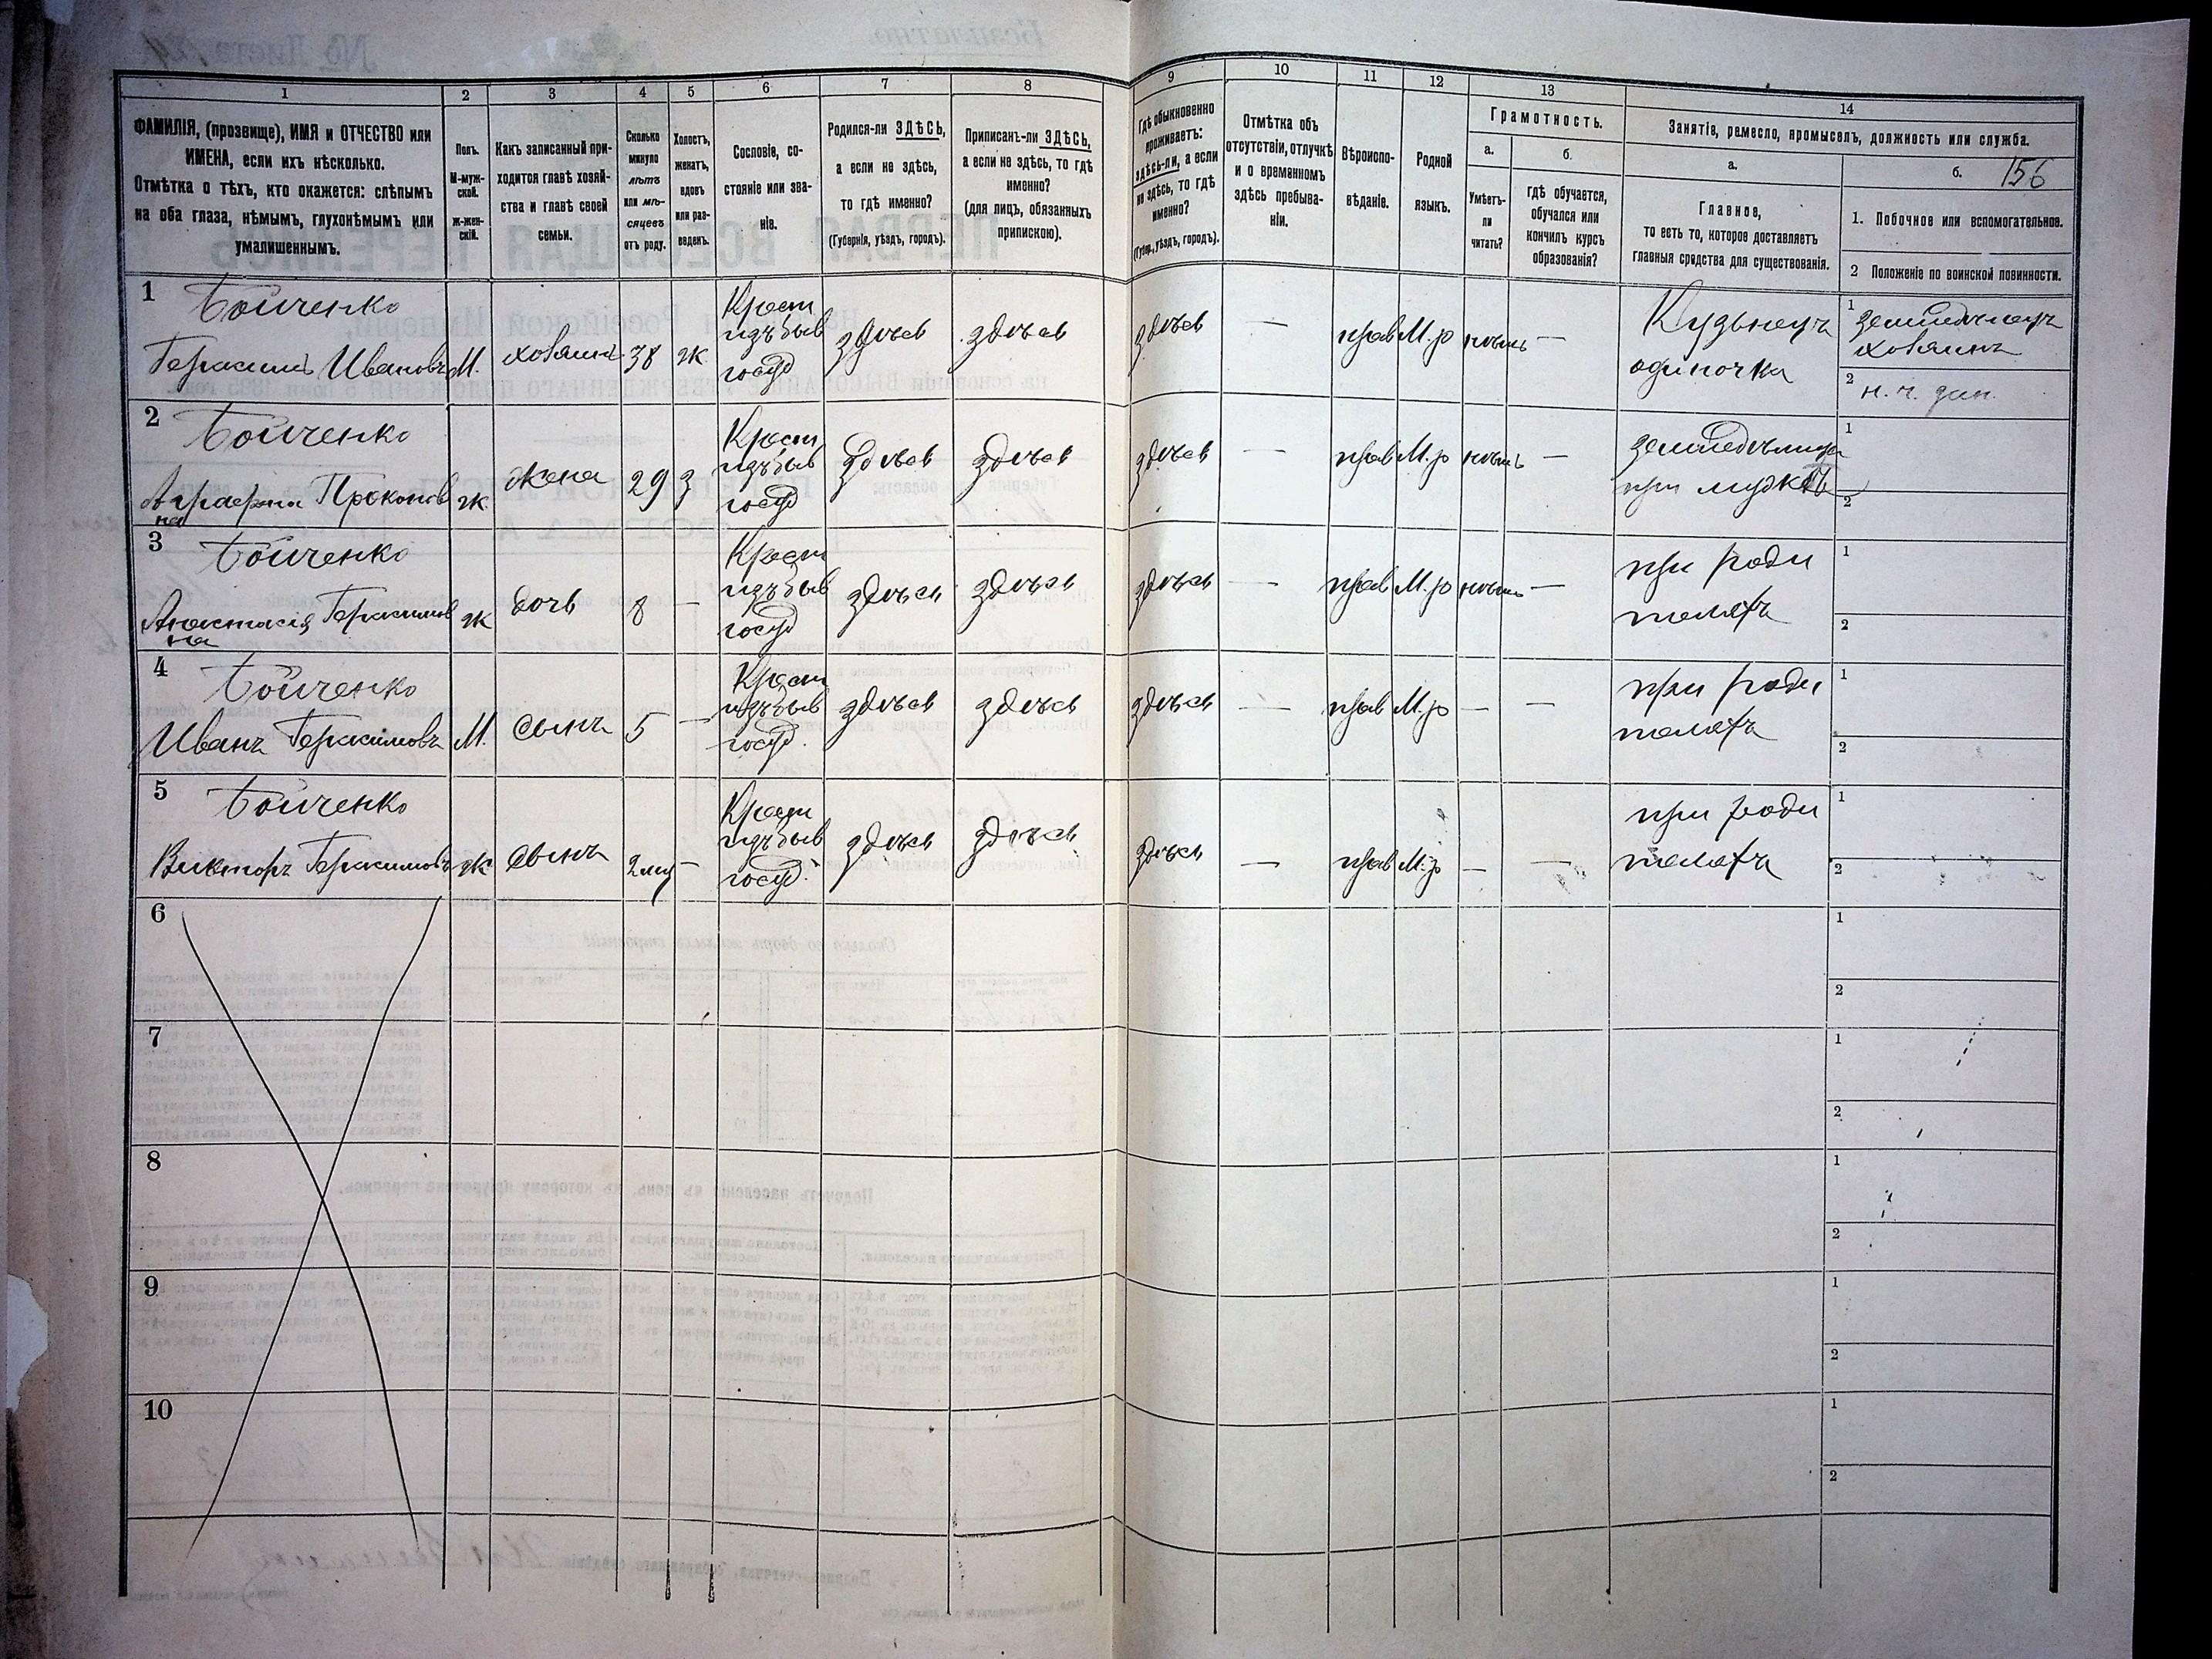 1
2
3
4
5
6
7
8
9
10
11
12
13
14
ФАМИЛІЯ, (прозвище), ИМЯ и ОТЧЕСТВО или
ИМЕНА, если ихъ нѣсколько.
Отмѣтка о тѣхъ, кто окажется: слѣпымъ
на оба глаза, нѣмымъ, глухонѣмымъ или
умалишеннымъ.
Полъ.
М-муж-
ской.
ж-жен-
скій.
Какъ записанный при-
ходится главѣ хозяй-
ства и главѣ своей
семьи.
Сколько
минуло
лѣтъ
или мѣ-
сяцевъ
отъ роду.
Холостъ,
женатъ,
вдовъ
или раз-
веденъ.
Сословіе, со-
стояніе или зва-
ніе.
Родился-ли ЗДѢСЬ,
а если не здѣсь,
то гдѣ именно?
(Губернія, уѣздъ, городъ).
Приписанъ-ли ЗДѢСЬ,
а если не здѣсь, то гдѣ
именно?
(для лицъ, обязанныхъ
припискою).
Гдѣ обыкновенно
проживаетъ:
здѣсь-ли, а если
не здѣсь, то гдѣ
именно?
(Губер., уѣздъ, городъ).
Отмѣтка объ
отсутствіи, отлучкѣ
и о временномъ
здѣсь пребыва-
ніи.
Вѣроиспо-
вѣданіе.
Родной
языкъ.
Грамотность.
а.
Умѣетъ-
ли
читать?
б.
гдѣ обучается,
обучался или
кончилъ курсъ
образованія?
Занятіе, ремесло, промыселъ, должность или служба.
а.
Главное,
то есть то, которое доставляетъ
главныя средства для существованія.
б.
156
1. Побочное или вспомогательное.
2 Положеніе по воинской повинности.
1
Бойченко
Герасимъ Ивановъ
М.
хозяинъ
38
ж
Крест
изъ быв
госуд
здѣсь
здѣсь
здѣсь
—
прав
М.р
нѣтъ
—
Кузнецъ
одиночка
1
земледѣлецъ
хозяинъ
2
н. ч. зап.
2
Бойченко
Аграфена Прокопов
на
ж.
жена
29
з
Крест
изъ быв
госуд
здѣсь
здѣсь
здѣсь
—
прав
М.р
нѣтъ
—
при мужѣ
1
2
3
Бойченко
Анастасія Герасимов
на
ж
дочь
8
—
Крест
изъ быв
госуд
здѣсь
здѣсь
здѣсь
—
прав
М.р
нѣтъ
—
при роди
теляхъ
1
2
4
Бойченко
Иванъ Герасимовъ
М.
сынъ
5
—
Крест
изъ быв
госуд.
здѣсь
здѣсь
здѣсь
—
прав
М.р
—
—
при роди
теляхъ
1
2
5
Бойченко
Викторъ Герасимовъ
ж
сынъ
—
Крест
изъ быв
госуд.
здѣсь
здѣсь
здѣсь
—
прав
М.р
—
—
при роди
теляхъ
1
2
6
1
2
7
1
2
8
1
2
9
1
2
10
1
2